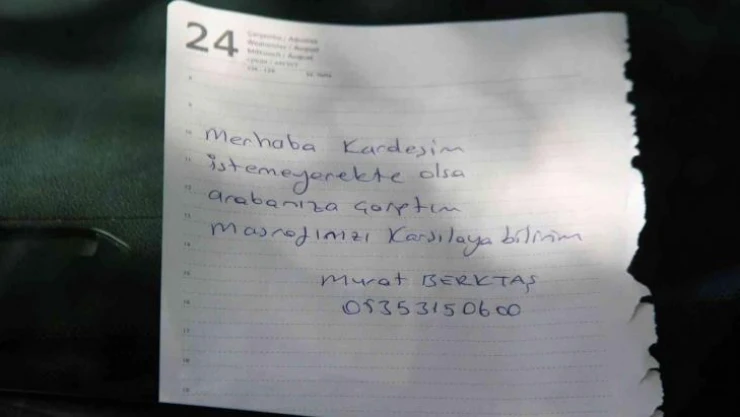 24
Çarşamba / Ağustos
Wednesday / August
Mittwoch / August
9
10
11
12
13
14
15
16
17
18
19
Merhaba Kardeşim
istemeyerekte olsa
arabanıza çarptım
Masrafınızı Karşılaya bilirim
Murat BERKTAŞ
05353150600